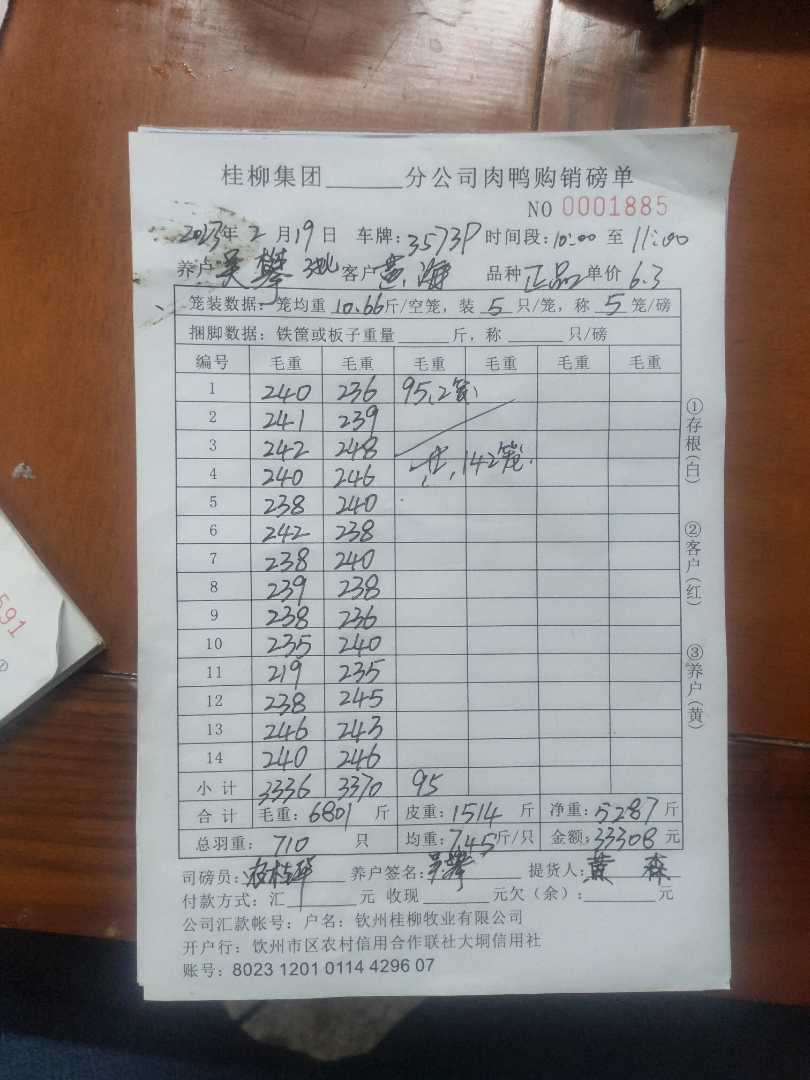 桂柳集团______分公司肉鸭购销磅单
NO 0001885
2023年2月19日 车牌:3573P 时间段:10:00 至 11:00
养户 吴攀 客户 黄海 品种 正品 单价 6.3
笼装数据: 笼均重 10.66 斤/空笼, 装 5 只/笼, 称 5 笼/磅
捆脚数据: 铁筐或板子重量______斤, 称______只/磅
编号 毛重 毛重 毛重 毛重 毛重 毛重
1 240 236 95,2笼
2 241 239
3 242 248
4 240 246 共,142笼
5 238 240
6 242 238
7 238 240
8 239 238
9 238 236
10 235 240
11 219 235
12 238 245
13 246 243
14 240 246
小计 3336 3370 95
合计 毛重: 6801 斤 皮重: 1514 斤 净重: 5287 斤
总羽重: 710 只 均重: 7.45 斤/只 金额: 33308 元
司磅员: 农桂华 养户签名: 吴攀 提货人: 黄森
付款方式: 汇______元 收现______元欠(余):______元
公司汇款帐号: 户名: 钦州桂柳牧业有限公司
开户行: 钦州市区农村信用合作联社大垌信用社
账号: 8023 1201 0114 4296 07
①存根(白)
②客户(红)
③养户(黄)
591